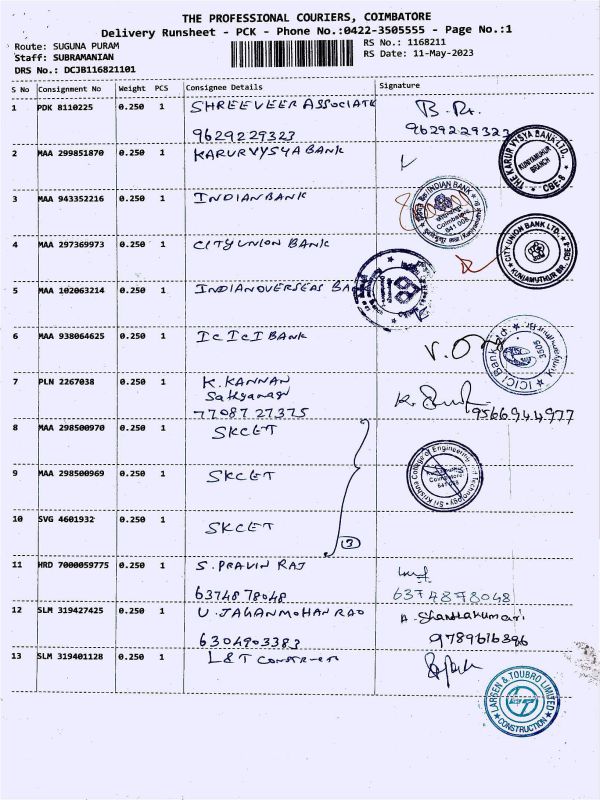 THE PROFESSIONAL COURIERS, COIMBATORE
Delivery Runsheet - PCK - Phone No.:0422-3505555 - Page No.:1
Route: SUGUNA PURAM RS No.: 1168211
Staff: SUBRAMANIAN RS Date: 11-May-2023
DRS No.: DCJB116821101
S No Consignment No Weight PCS Consignee Details Signature
1 PDK 8110225 0.250 1 SHREEVEER ASSOCIATE B.
9629229323 9629229323
2 MAA 299851870 0.250 1 KARUR VYSYA BANK
THE KARUR VYSYA BANK LTD., KUNIYAMUTHUR BRANCH CBE-8
3 MAA 943352216 0.250 1 INDIAN BANK
INDIAN BANK Coimbatore 641 008
4 MAA 297369973 0.250 1 CITY UNION BANK
CITY UNION BANK LTD. KUNIAMUTHUR BR. CBE-8
5 MAA 102063214 0.250 1 INDIAN OVERSEAS BANK
6 MAA 938064625 0.250 1 ICICI BANK
ICICI Bank 3505
7 PLN 2267038 0.250 1 K. KANNAN
Sathyanagi
77087 27375 9566944977
8 MAA 298500970 0.250 1 SKCET
Sri Krishna College of Engineering & Technology Coimbatore 641 008
9 MAA 298500969 0.250 1 SKCET
10 SVG 4601932 0.250 1 SKCET
3
11 HRD 7000059775 0.250 1 S. PRAVIN RAJ
6374878048 6374878048
12 SLM 319427425 0.250 1 U. JAGANMOHAN RAO A. Shanthakumari
6304903383 9789616396
13 SLM 319401128 0.250 1 L&T Construct
LARSEN & TOUBRO LIMITED CONSTRUCTION